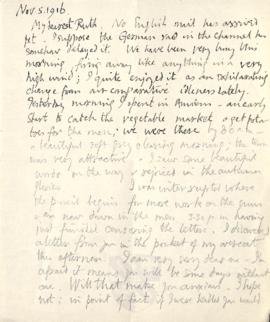 Nov. 5. 1916
My dearest Ruth No English mail has arrived
yet - I suppose the German raid in the channel has
somehow delayed it. We have been very busy this
morning, firing away like anything in a very
high wind; I quite enjoyed it as an exhilarating
change from our comparative idleness lately.
Yesterday morning I spent in Amiens - an early
start to catch the vegetable market & get pota-
toes for the men; we were there by 8.0 a.m. -
a beautiful soft grey clearing morning; the town
was very attractive. I saw some beautiful
woods on the way & rejoiced in the autumn
glories I was interrupted where
the pencil begins for more work on the guns
& am now down in the mess 5.30 p.m having
just finished censoring the letters. I discovered
a letter from you in the pocket of my overcoat
this afternoon I am very very dear one - I'm
afraid it means you will be some days without
one. Will that make you anxious. I hope
not; in point of fact, if I were killed you would